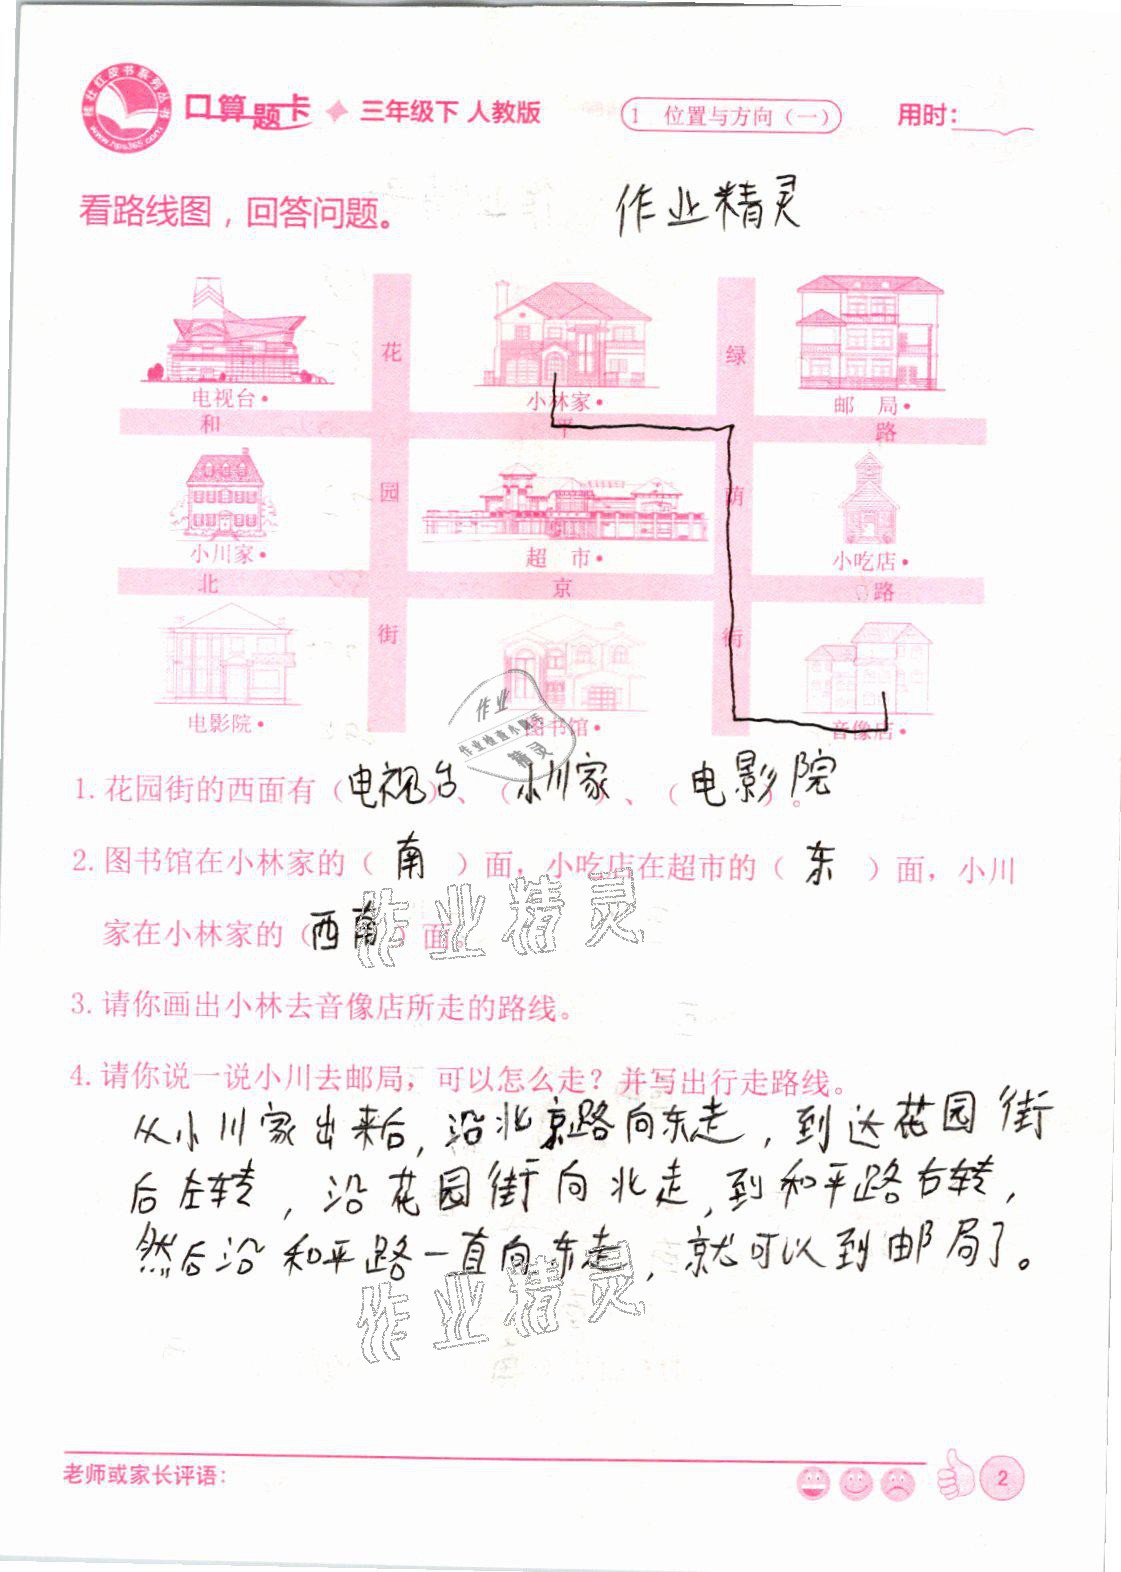 桂壮红皮书系列丛书
www.hps365.com
口算题卡 三年级下 人教版
1 位置与方向(一)
用时:
看路线图，回答问题。
作业精灵
花
绿
电视台
小林家
邮局
和
平
路
园
荫
小川家
超市
小吃店
北
京
路
街
街
电影院
图书馆
音像店
作业
作业检查小助手
精灵
1. 花园街的西面有(电视台)、(小川家)、(电影院)。
2. 图书馆在小林家的(南)面，小吃店在超市的(东)面，小川
家在小林家的(西南)面。
作业精灵
3. 请你画出小林去音像店所走的路线。
4. 请你说一说小川去邮局，可以怎么走？并写出行走路线。
从小川家出来后，沿北京路向东走，到达花园街
后左转，沿花园街向北走，到和平路右转，
然后沿和平路一直向东走，就可以到邮局了。
作业精灵
老师或家长评语:
2